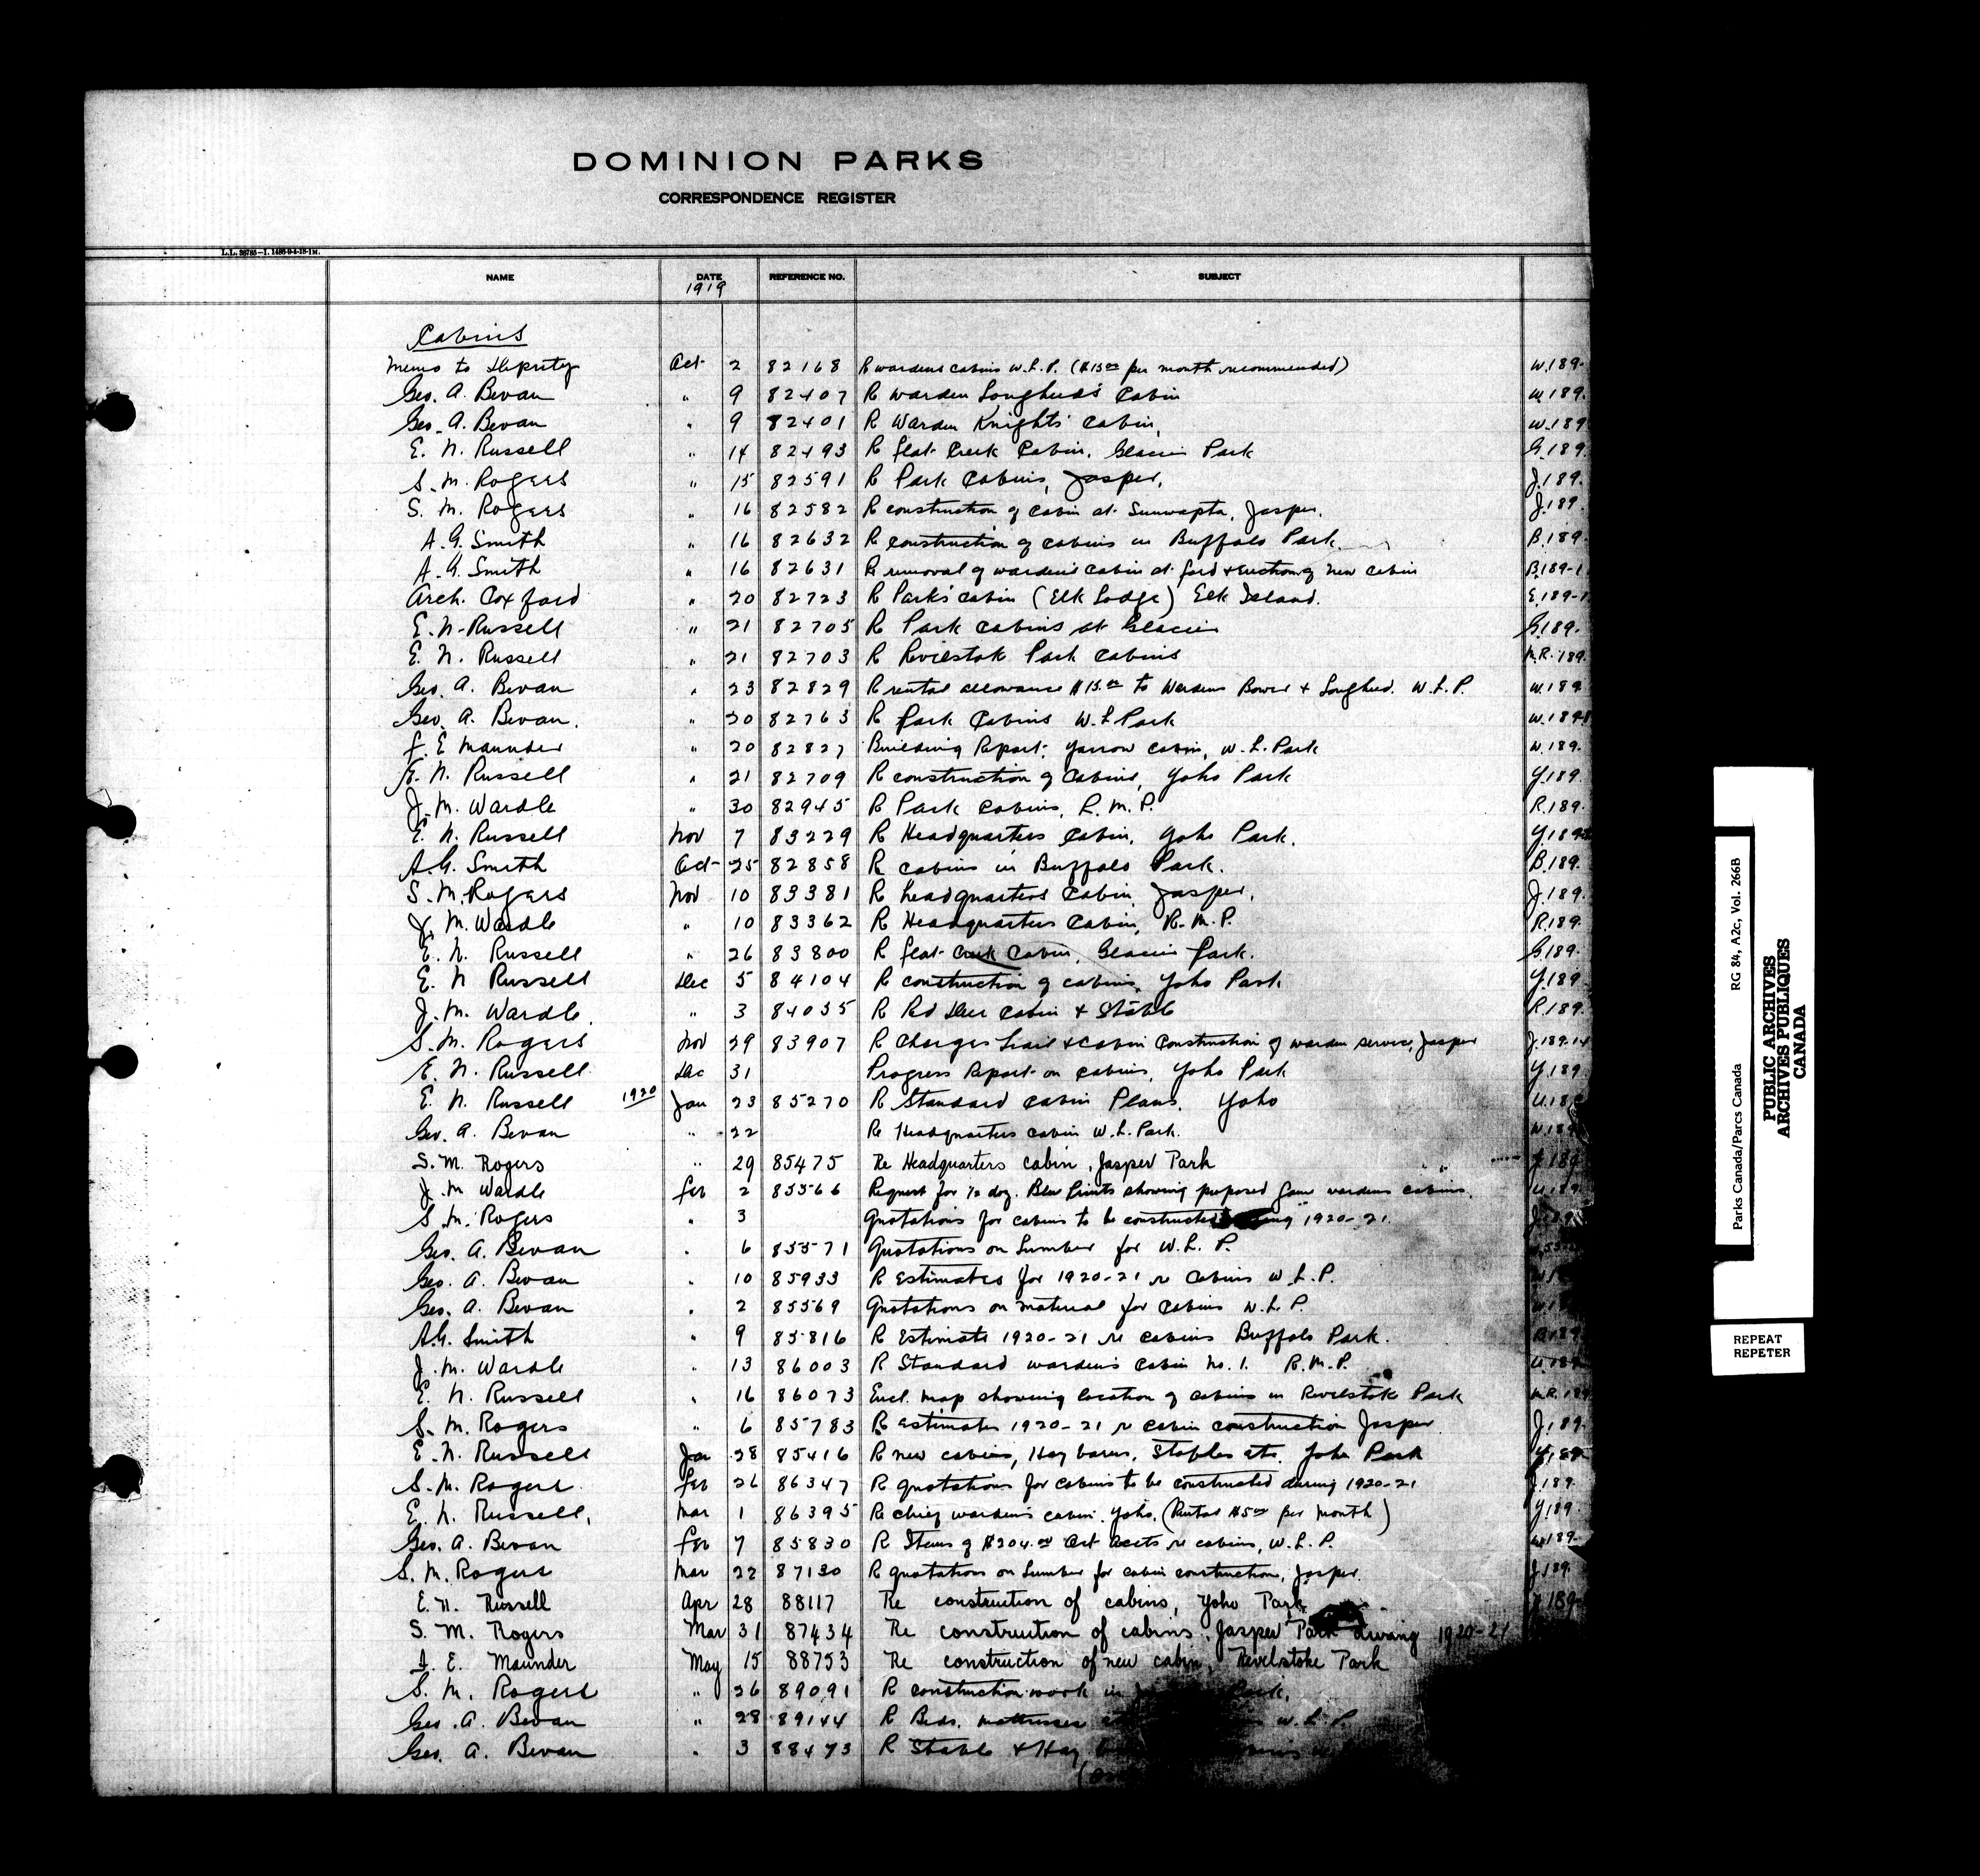 DOMINION PARKS
CORRESPONDENCE REGISTER
L.L. 36785—I. 1486-9-4-18-1M.
NAME DATE REFERENCE NO. SUBJECT
1919
Cabins
Memo to Deputy Oct 2 82168 R wardens cabins W.L.P. ($15.00 per month recommended) W.189.
Geo. A. Bevan " 9 82407 R Warden Lougheed's Cabin W.189.
Geo. A. Bevan " 9 82401 R Warden Knights Cabin, W.189
E. N. Russell " 14 82493 R flat Creek Cabin, Glacier Park G.189.
S. M. Rogers " 15 82591 R Park Cabins, Jasper, J.189.
S. M. Rogers " 16 82582 R construction of cabin at Sunwapta, Jasper. J.189.
A. G. Smith " 16 82632 R construction of cabins in Buffalo Park B.189.
A. G. Smith " 16 82631 Re removal of warden's cabin at ford + erection of new cabin B.189-1
Arch. Coxford " 20 82723 R Park's cabin (Elk Lodge) Elk Island. E.189-1
E. N. Russell " 21 82705 R Park Cabins at Glacier G.189.
E. N. Russell " 21 82703 R Revelstok Park Cabins M.R.189.
Geo. A. Bevan " 23 82829 R rental allowance $15.00 to Wardens Bower + Lougheed. W.L.P. W.189
Geo. A. Bevan. " 20 82763 R Park Cabins W.L Park W.189
f. E Maunder " 20 82827 Building Report. Yarrow Cabin, W.L. Park W.189.
E. N. Russell " 21 82709 R construction of Cabins, Yoho Park Y.189.
J. M. Wardle " 30 82945 R Park Cabins, R.M.P. R.189.
E. N. Russell Nov 7 83229 R Headquarters Cabin, Yoho Park. Y.189
A. G. Smith Oct 25 82858 R cabins in Buffalo Park. B.189.
S. M. Rogers Nov 10 83381 R headquarters Cabin, Jasper, J.189.
J. M. Wardle " 10 83362 R Headquarters Cabin, R.M.P. R.189.
E. N. Russell " 26 83800 R flat Creek Cabin, Glacier Park. G.189.
E. N Russell Dec 5 84104 R construction of cabins, Yoho Park Y.189.
J. M. Wardle. " 3 84055 R Red Deer Cabin + Stable R.189.
S. M. Rogers Nov 29 83907 R Charges Trail + Cabin Construction of warden service, Jasper J.189.14
E. N. Russell. Dec 31 Progress Report on Cabins, Yoho Park Y.189.
E. N. Russell 1920 Jan 23 85270 R Standard Cabin Plans. Yoho U.189
Geo. A. Bevan " 22 Re Headquarters Cabin W.L. Park. W.189
S. M. Rogers " 29 85475 Re Headquarters cabin, Jasper Park J.189
J. M Wardle feb 2 85566 Request for ½ doz. Blue Prints showing proposed Game wardens cabins. U.189
S. M. Rogers " 3 Quotations for cabins to be constructed 1920-21.
Geo. A. Bevan " 6 85571 Quotations on Lumber for W.L.P.
Geo. A. Bevan " 10 85933 R Estimates for 1920-21 re Cabins W.L.P.
Geo. A. Bevan " 2 85569 Quotations on material for Cabins W.L.P.
A. G. Smith " 9 85816 R Estimate 1920-21 re cabins Buffalo Park. B.189
J. M. Wardle " 13 86003 R Standard wardens Cabin No. 1. R.M.P. U.189
E. N. Russell " 16 86073 Encl. map showing location of cabins in Revelstok Park M.R.189
S. M. Rogers " 6 85783 R estimates 1920-21 re cabin construction Jasper J.189.
E. N. Russell Jan 28 85416 R new cabins, Hay barns, Stables etc. Yoho Park Y.189
S. M. Rogers feb 26 86347 R quotations for cabins to be constructed during 1920-21 J.189.
E. N. Russell, Mar 1 86395 Re chief wardens cabin. Yoho. (Rental $5.00 per month) Y.189.
Geo. A. Bevan feb 7 85830 R Items of $204.00 Oct Accts re cabins, W.L.P. W.189.
S. M. Rogers Mar 22 87130 R quotations on Lumber for cabin construction, Jasper. J.189.
E. N. Russell Apr 28 88117 Re construction of cabins, Yoho Park 189
S. M. Rogers Mar 31 87434 Re construction of cabins, Jasper Park during 1920-21
E. Maunder May 15 88753 Re construction of new cabin, Revelstoke Park
S. M. Rogers " 26 89091 R construction work in Park.
Geo. A. Bevan " 28 89144 R Beds, mattresses W.L.P.
Geo. A. Bevan " 3 88473 R Stable + Hay
RG 84, A2c, Vol. 266B
Parks Canada/Parcs Canada
PUBLIC ARCHIVES
ARCHIVES PUBLIQUES
CANADA
REPEAT
REPETER